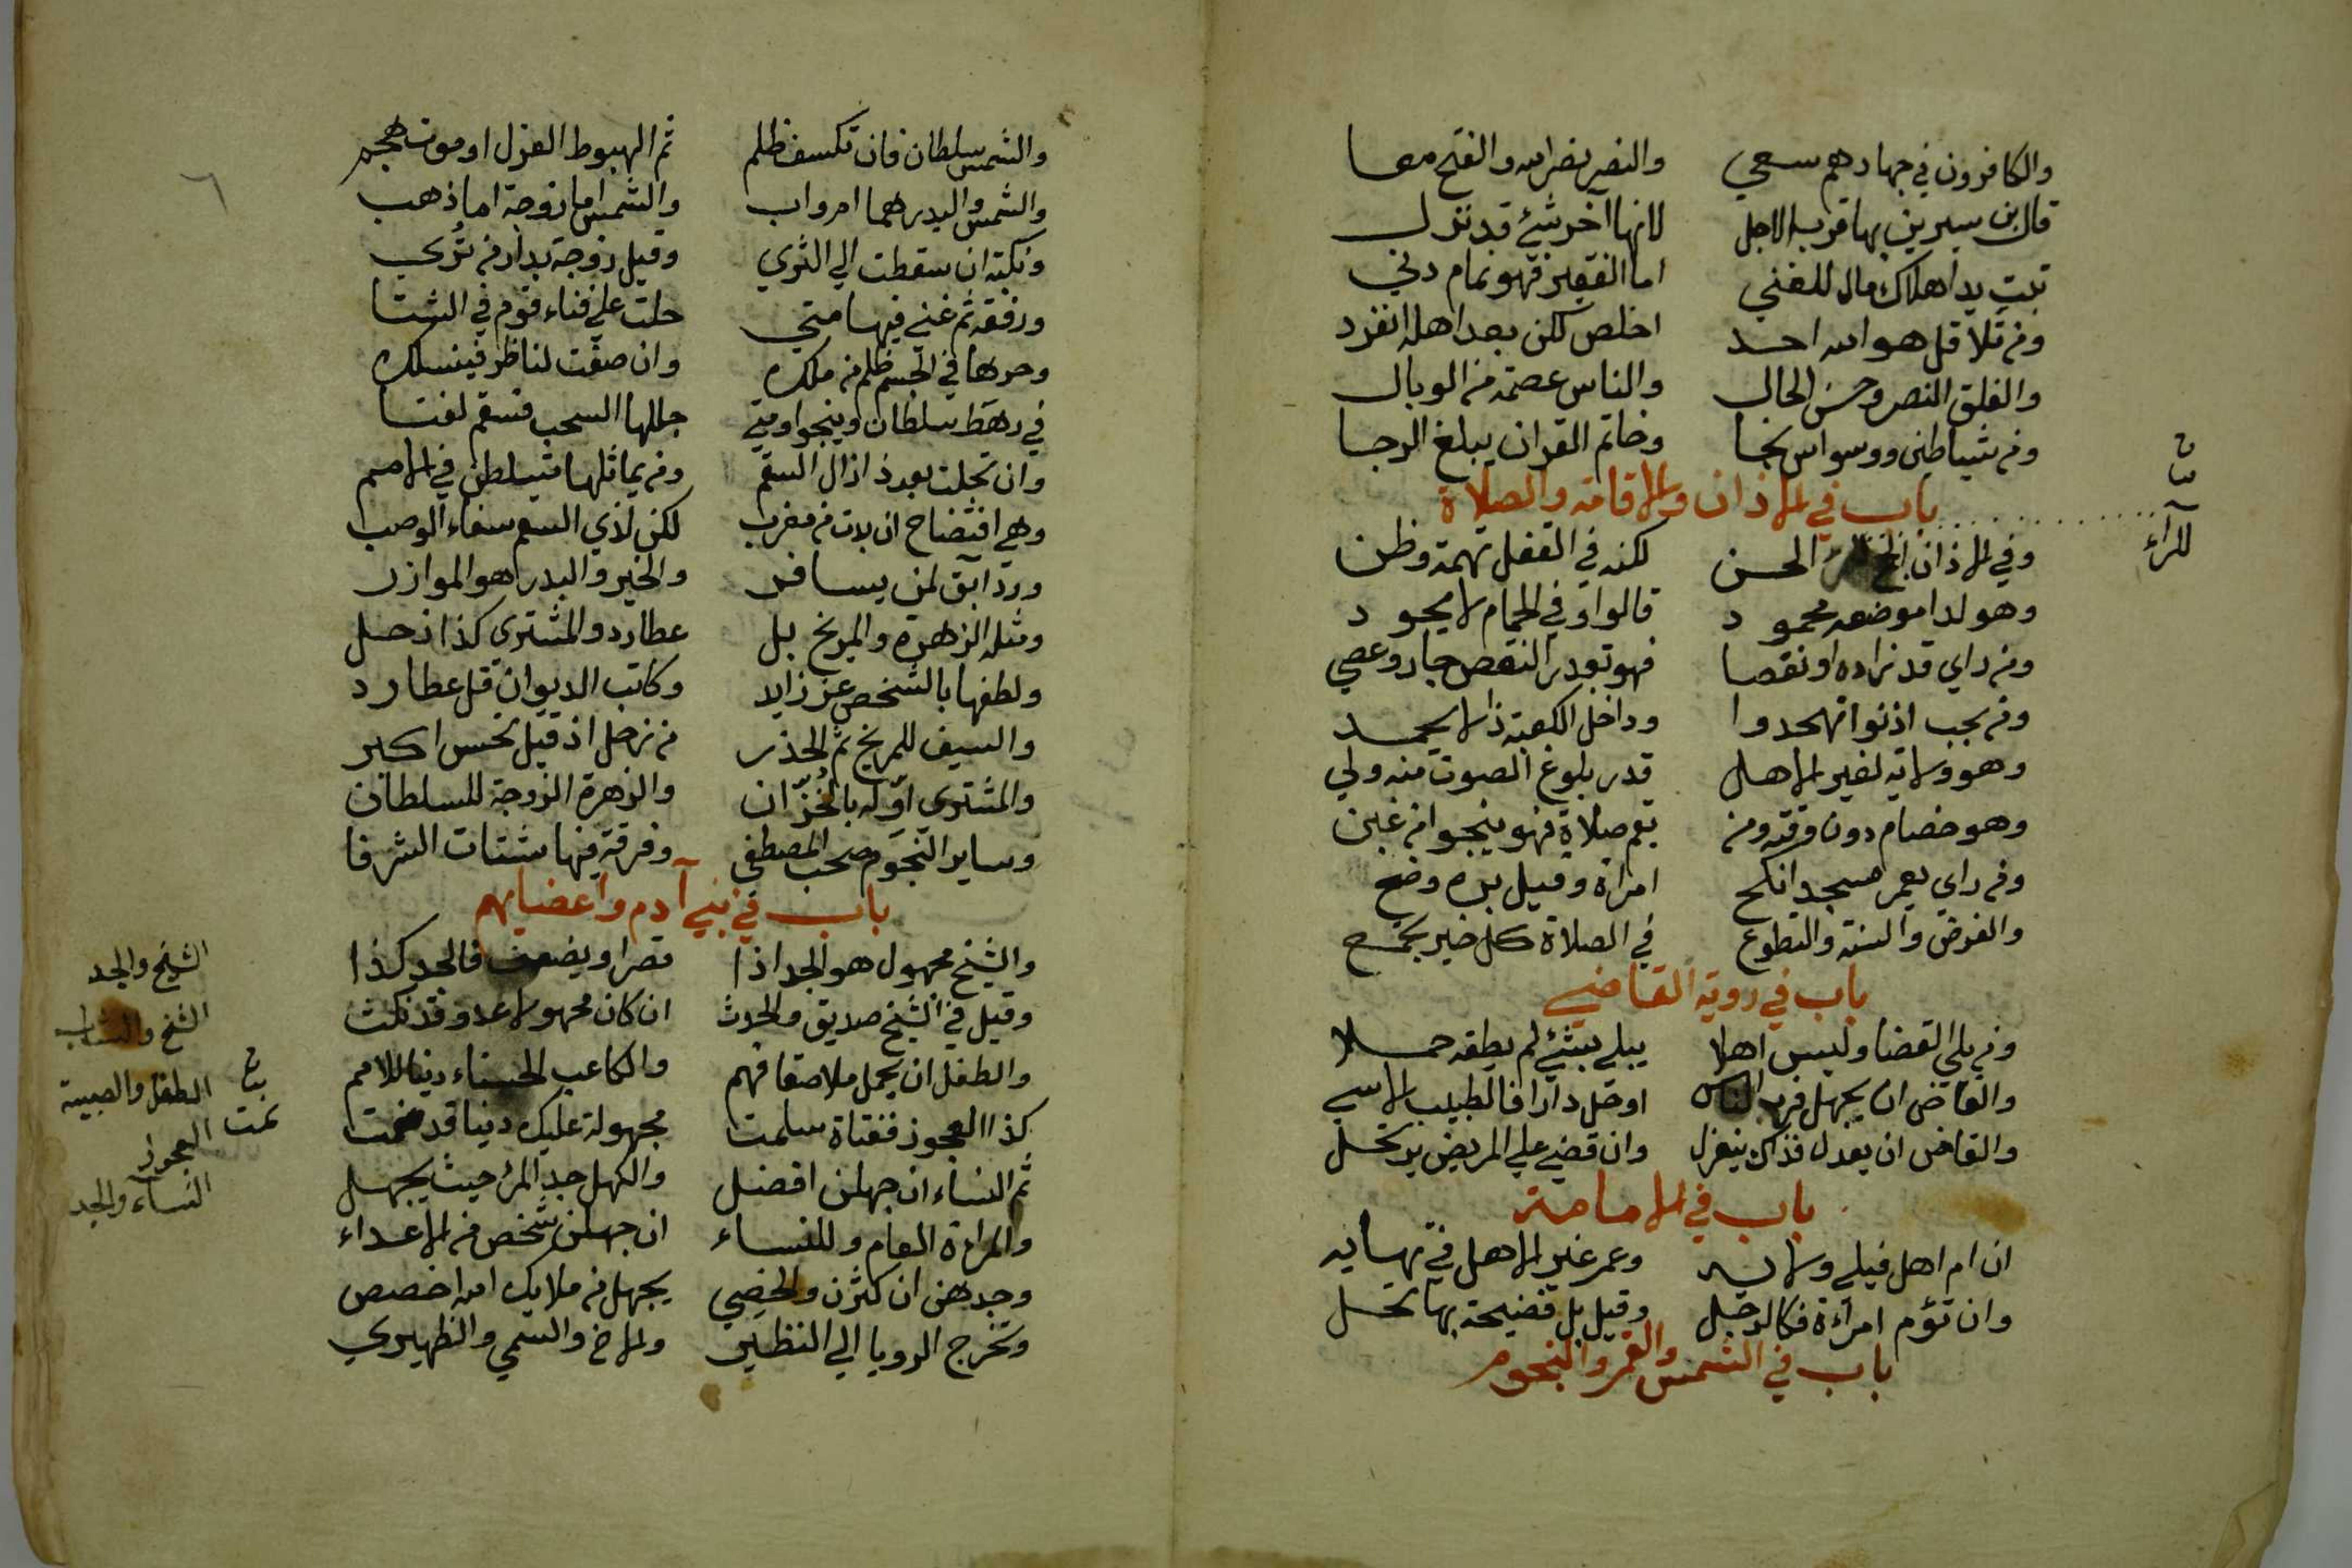 والكافرون في جهادهم سعي والنصر نصر الله والفتح معا
قال بن سيرين بها قرب الاجل لانها آخر شئ قد نزل
تبت يدا هلاك مال للغني اما الفقير فهو نمام دني
ومن تلا قل هو الله احد اخلص لكن بعد اهله انفرد
والفلق النصر وحسن الحال والناس عصمة من الوبال
ومن شياطين ووسواس نجا وخاتم القران يبلغ الرجا
باب في الاذان والاقامة والصلاة
وفي الاذان الحسن لكنه في القفل تهمة وظن
وهو لدا موضعه محمود قالوا وفي الحمام لا يجود
ومن راي قد زاده او نقصا فهو بقدر النقص جار وعصي
ومن يجب اذنوا تهجدوا وداخل الكعبة ذا لا يحمد
وهو ولاية لغير الاهل قدر بلوغ الصوت منه ولي
وهو خصام دون وقته ومن يقم صلاة فهو ينجو من غبن
ومن راي يعمر مسجد انكح امراة وقيل بره وضح
والفرض والسنة والتطوع في الصلاة كل خير يجمع
باب في روية القاضي
ومن يلي القضا وليس اهلا يبلي بشئ لم يطقه حملا
والقاض ان يجهل قرب الناس اوحل دارا فالطبيب الاسي
والقاض ان يعدل فذاك ينعزل وان قضي علي المريض يرتحل
باب في الامامة
ان ام اهل فيلي ولاية وعمر غير الاهل في نهاية
وان تؤم امرأة فكالرجل وقيل بل فضيحة بها تحل
باب في الشمس والقمر والنجوم
للرآء
والشمس سلطان فان تكسف ظلم ثم الهبوط العزل او موت هجم
والشمس والبدر هما ام واب والشمس اما زوجة اما ذهب
ونكبة ان سقطت الي الثري وقيل زوجة بدار من تري
ورفقة ثم غني فيها متي حلت علي فناء قوم في الشتا
وحرها في الجسم ظلم من ملك وان صفت لناظر فينسلك
في رهط سلطان وينجو ومتي جللها السحب فسقم لفتا
وان تجلت بعد ذا زال السقم ومن يماثلها تسلطن في الامم
وهي افتضاح ان بدت من مغرب لكن لذي السقم شفاء الوصب
ورد آبق لمن يسافر والخير والبدر هو الموازر
ومثله الزهرة والمريخ بل عطارد والمشتري كذا زحل
ولطفها بالشخص عز زايد وكاتب الديوان قل عطارد
والسيف للمريخ ثم الحذر من زحل اذ قيل نحس اكبر
والمشتري اوله بالخزان والزهرة الزوجة للسلطان
وساير النجوم صحب المصطفي وفرقة فيها شتات الشرفا
باب في بني آدم واعضايهم
والشيخ مجهول هو الجد اذا قصر او يضعف فالجد كذا
وقيل في الشيخ صديق والحدث ان كان مجهولا عدو قد نكث
والطفل ان يحمل ملاصقا فهم والكاعب الحسناء دنيا للامم
كذا العجوز ففتاة سلمت مجهولة عليك دنيا قدمت
ثم النساء ان جهلن افضل والكهل جد المرء حيث يجهل
والمراة العام وللنساء ان جهلن شخص من الاعداء
وجدهن ان كثرن والخصي يجهل من ملايك الله اخصص
وتخرج الرويا الي النظير والاخ والسمي والظهير
الشيخ والجد
الشيخ والشاب
الطفل والصبية
العجوز
النسآء والجد